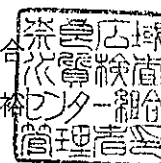 奈良広域
水質検査
センター組合
管理者印
合
裕